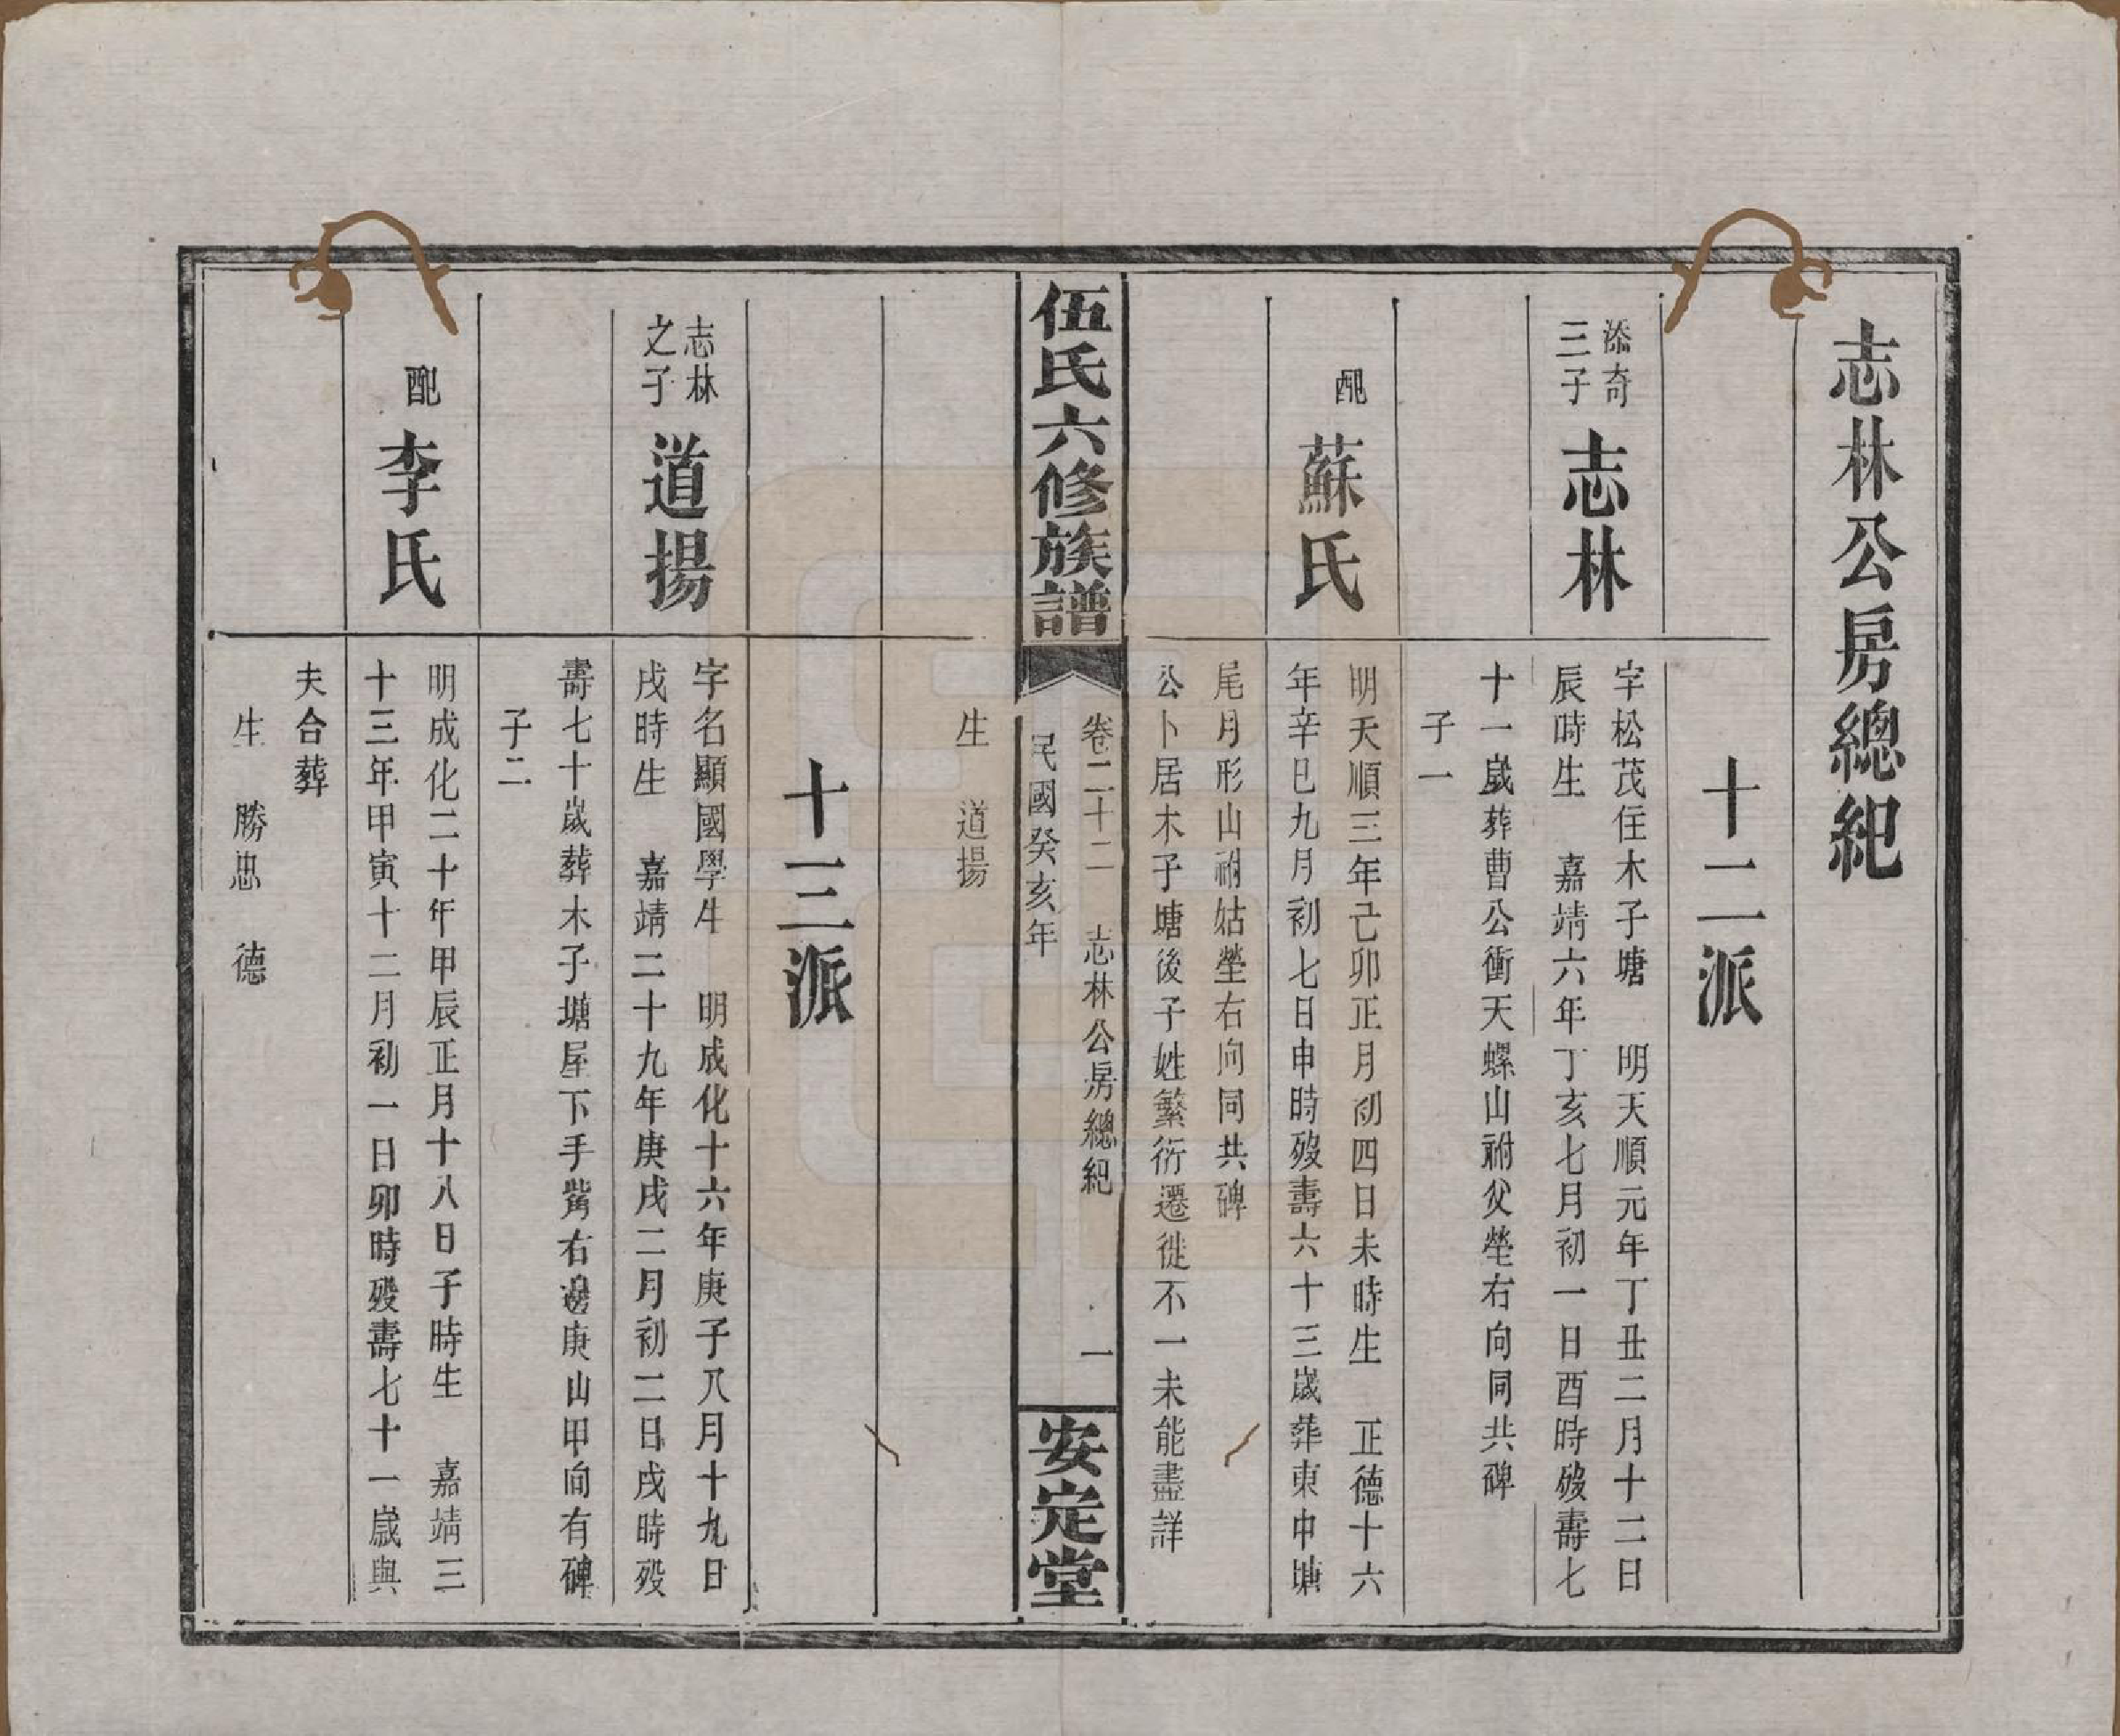 志林公房總紀
十二派
添奇
三子
志林
字松茂住木子塘　明天順元年丁丑二月十二日
辰時生　嘉靖六年丁亥七月初一日酉時歿壽七
十一歲葬曹公衝天螺山祔父塋右向同共碑
子一
配
蘇氏
明天順三年己卯正月初四日未時生　正德十六
年辛巳九月初七日申時歿壽六十三歲葬東中塘
尾月形山祔姑塋右向同共碑
公卜居木子塘後子姓繁衍遷徙不一未能盡詳
伍氏六修族譜
卷二十二　志林公房總紀　一
民國癸亥年
安定堂
生　道揚
十三派
志林
之子
道揚
字名顯國學生　明成化十六年庚子八月十九日
戌時生　嘉靖二十九年庚戌二月初二日戌時歿
壽七十歲葬木子塘屋下手嘴右邊庚山甲向有碑
子二
配
李氏
明成化二十年甲辰正月十八日子時生　嘉靖三
十三年甲寅十二月初一日卯時歿壽七十一歲與
夫合葬
生　勝忠　德